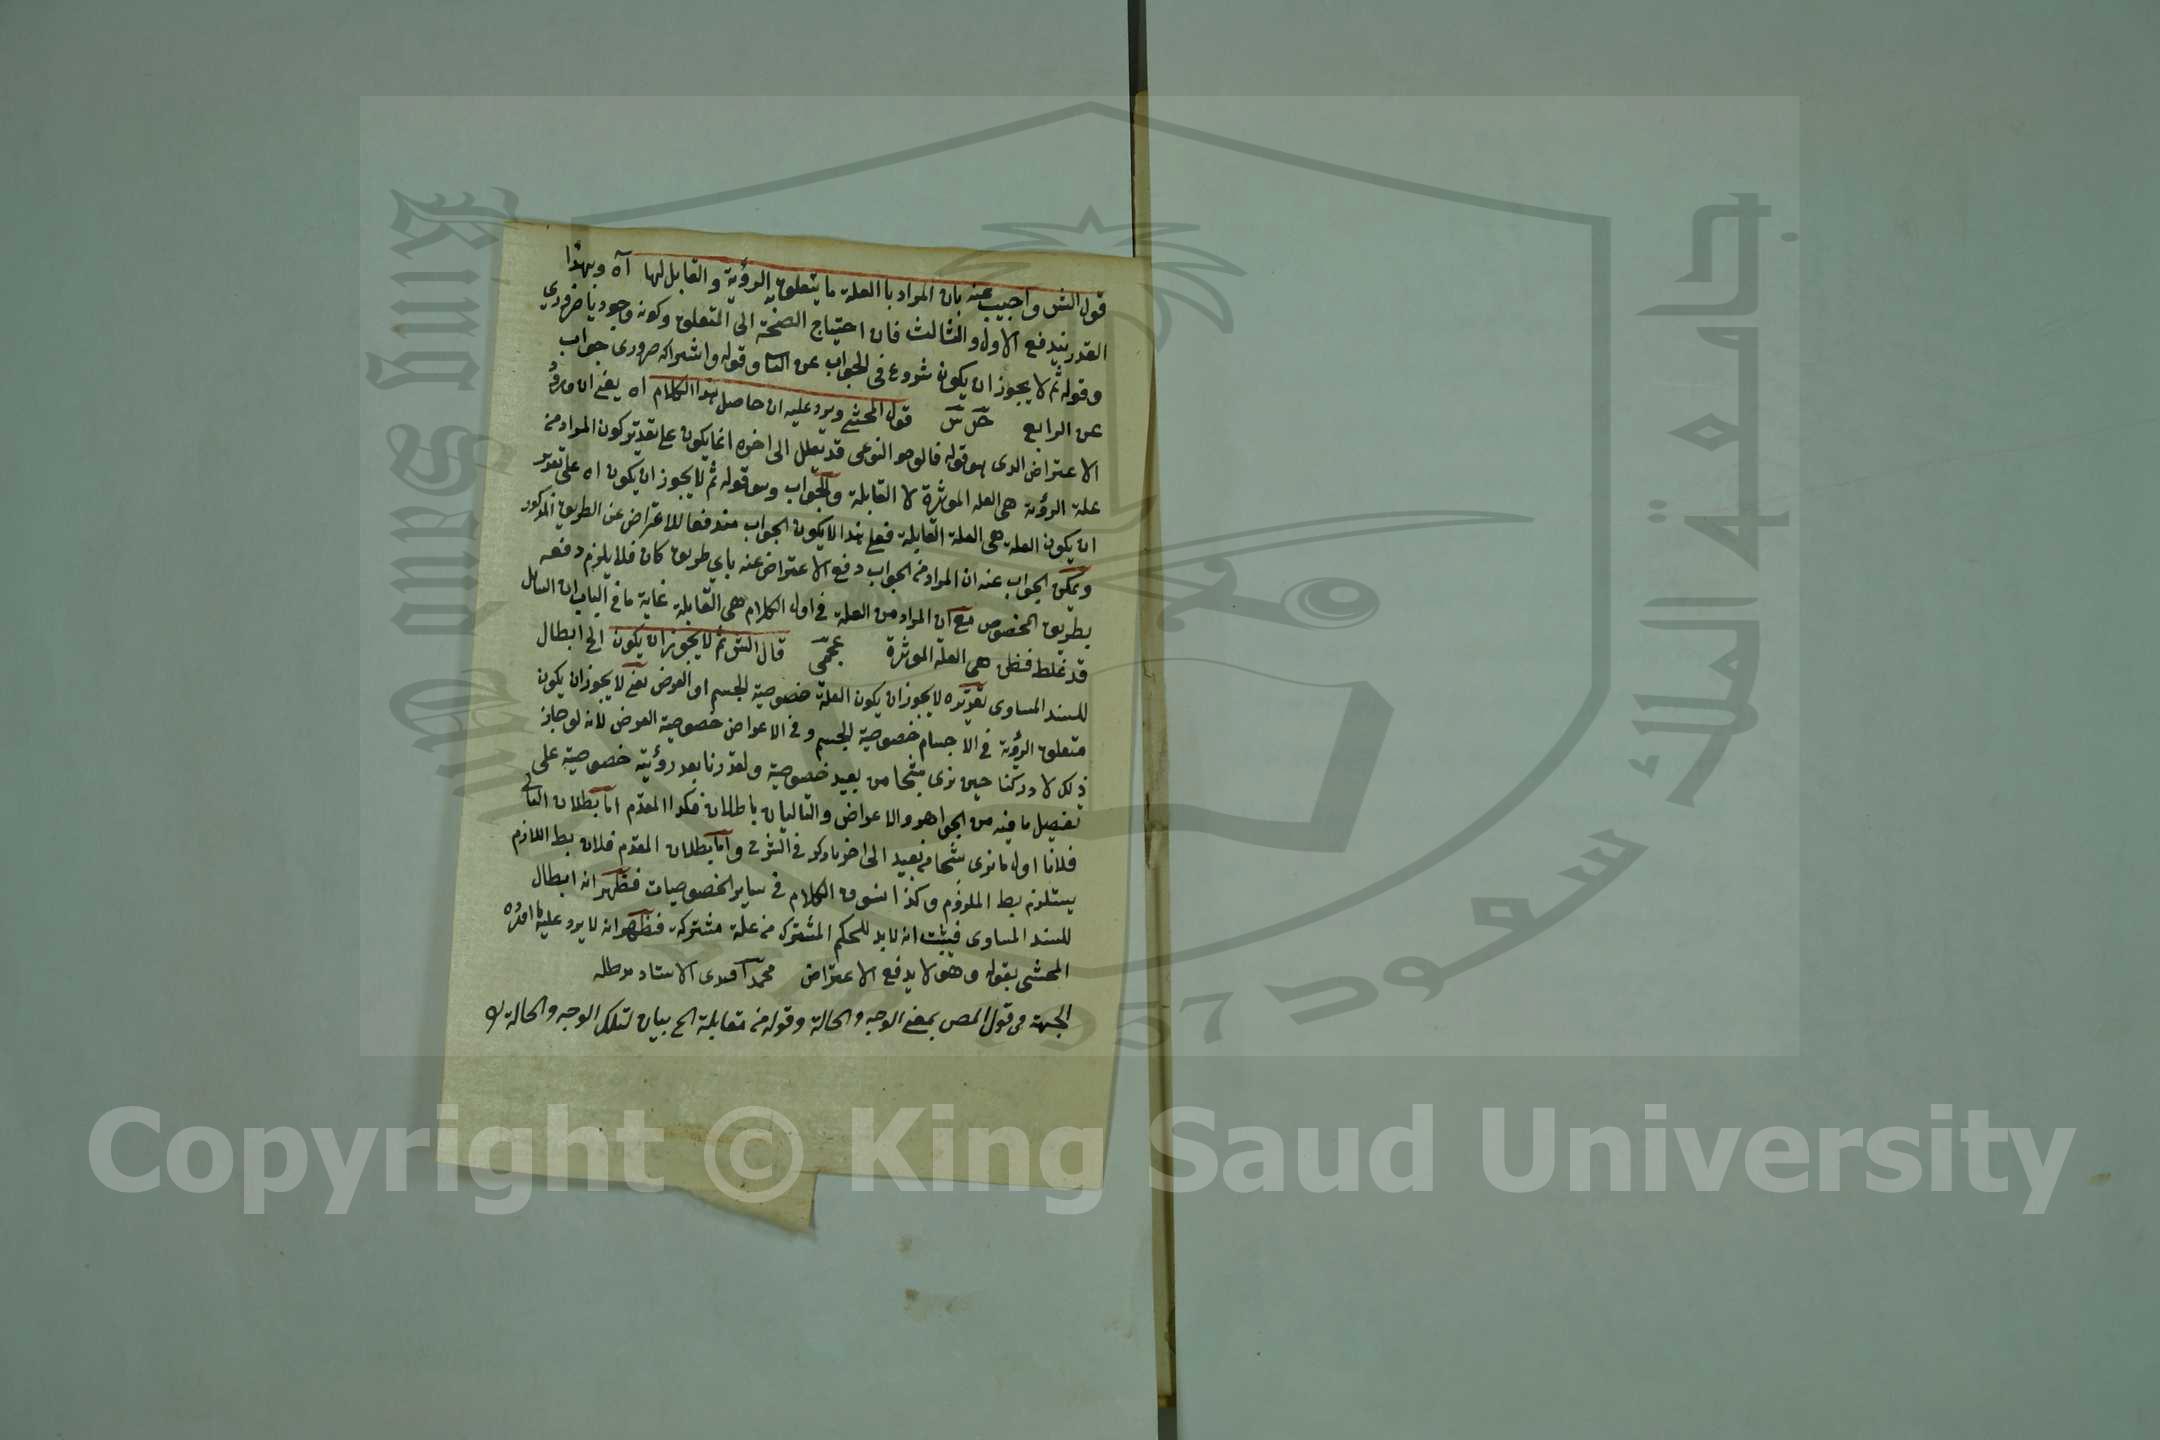 قول الش واجيب عنه بان المراد بالعلة ما يتعلق به الرؤية والقابل لها آه وبهذا
القدر يندفع الاول والثالث فان احتياج الصحة الى المتعلق وكونه وجوديا ضروري
وقوله ثم لا يجوز ان يكون شروع في الجواب عن الثا وقوله واشتراكه ضروري جواب
عن الرابع قول المحشي ويرد عليه ان حاصل هذا الكلام اه يعني ان
الاعتراض الذي هو قوله فالواحد النوعي قد تعلل الى اخره انما يكون على تقدير كون المراد من
علة الرؤية هي العلة الموثرة لا القابلة والجواب وهو قوله ثم لا يجوز ان يكون اه على تقدير
ان يكون العلة هي العلة القابلة فعلى هذا لا يكون الجواب مندفعا للاعتراض عن الطريق المذكور
ويمكن الجواب عنه ان المراد من الجواب دفع الاعتراض عنه باي طريق كان فلا يلزم دفعه
بطريق المخصوص مع ان المراد من العلة في اول الكلام هي القابلة غاية ما في الباب ان السائل
قد غلط فظن هي العلة الموثرة قال الش ثم لا يجوز ان يكون الخ ابطال
للسند المساوى تقريره لا يجوز ان يكون العلة خصوصية الجسم او العرض يعني لا يجوز ان يكون
متعلق الرؤية في الاجسام خصوصية الجسم وفي الاعراض خصوصية العرض لانه لو جاز
ذلك لادركنا حين نرى شبحا من بعيد خصوصية ولقدرنا بعد رؤيته خصوصية على
تفصيل ما فيه من الجواهر والاعراض والتاليان باطلان فكذا المقدم اما بطلان التالي
فلانا اول ما نرى شبحا من بعيد الى اخر ما ذكر في الشرح واما بطلان المقدم فلان بط اللازم
يستلزم بط الملزوم وكذا نسوق الكلام في سائر الخصوصيات فظهر انه ابطال
للسند المساوى فيثبت انه لابد للحكم المشترك من علة مشتركة فظهر انه لا يرد عليه ما اورده
المحشي بقوله وهو لا يدفع الاعتراض محمد افندى الاستاد مد ظله
الجهة في قول المص بمعنى الوجه والحالة وقوله من مقابلة الخ بيان لتلك الوجه والحالة
Copyright © King Saud University
King Saud University
جامعة الملك سعود
1957